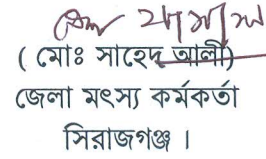 ( মোঃ সাহেদ আলী)
জেলা মৎস্য কর্মকর্তা
সিরাজগঞ্জ ।